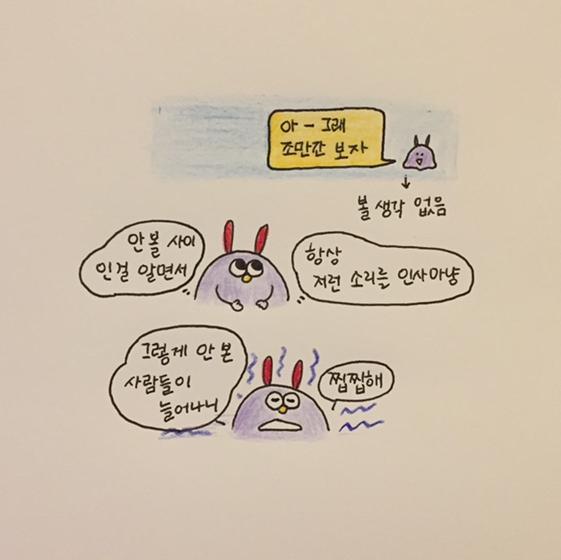 아 - 그래
조만간 보자
볼 생각 없음
안 볼 사이
인걸 알면서
항상
저런 소리를 인사마냥
그렇게 안 본
사람들이
늘어나니
찝찝해